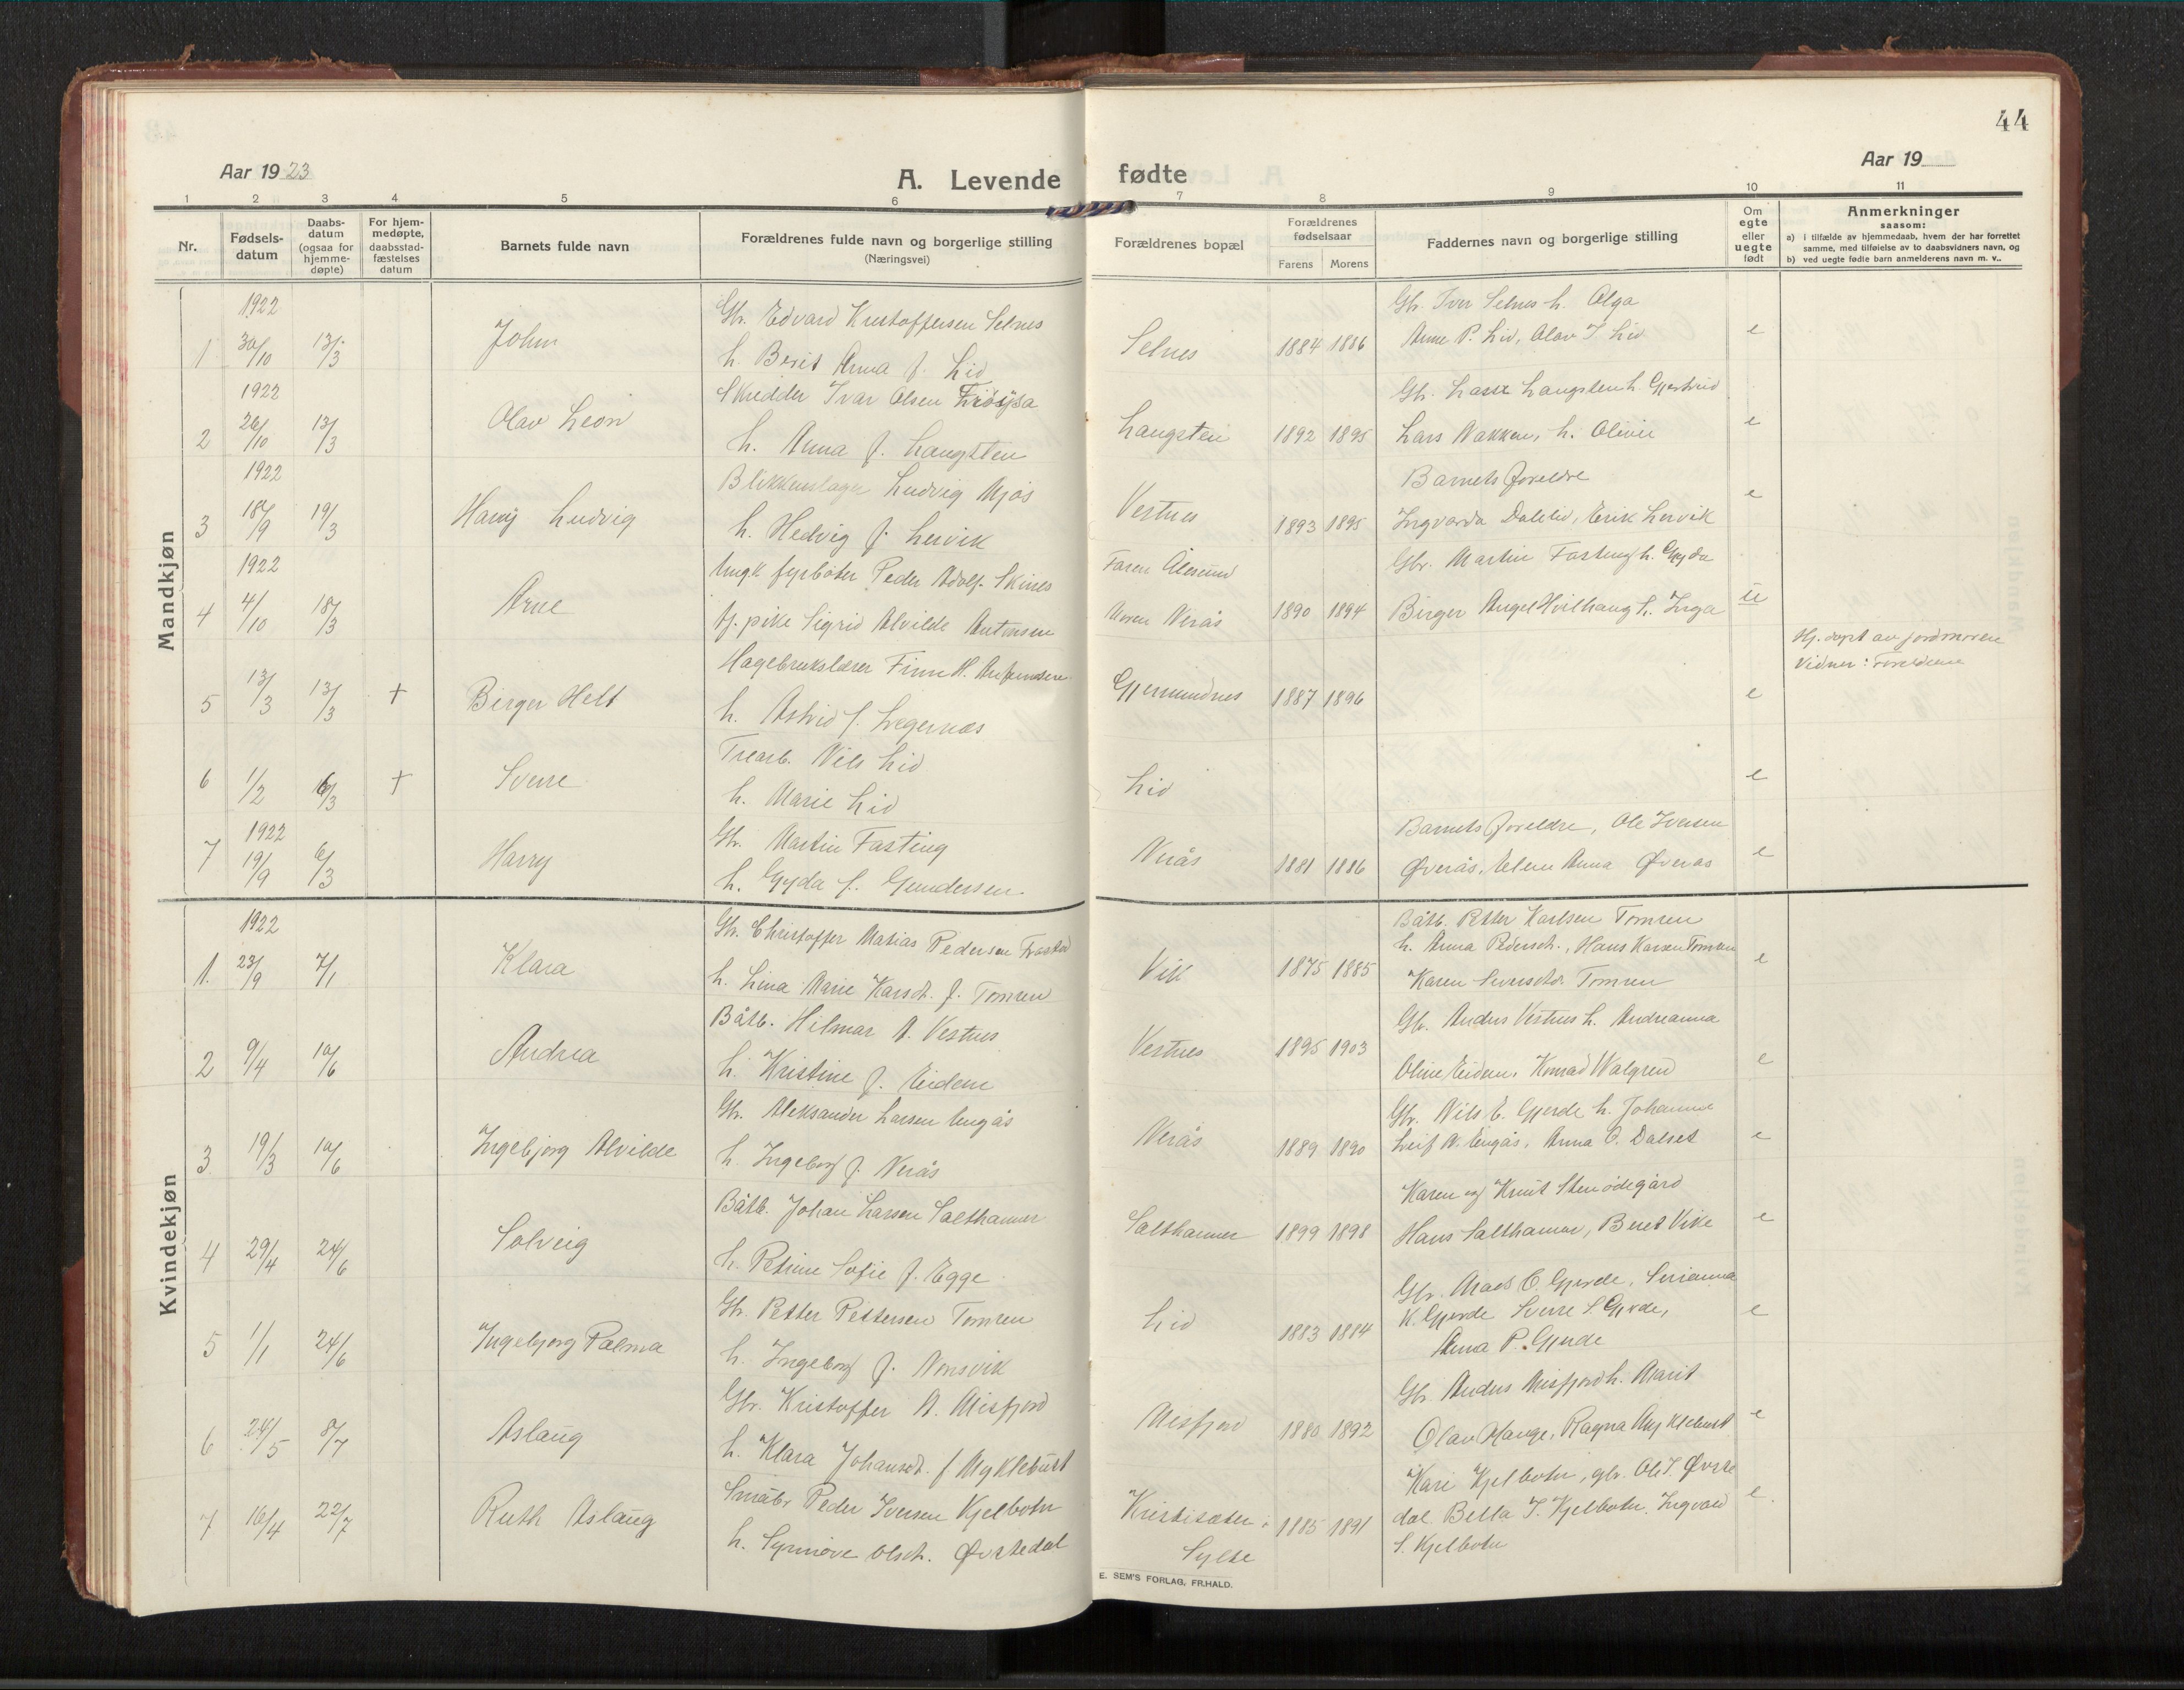 44
Aar 1923
A. Levende fødte
Aar 19
1 2 3 4 5 6 7 8 9 10 11
Nr.
Fødsels-
datum
Daabs-
datum
(ogsaa for
hjemme-
døpte)
For hjem-
medøpte,
daabsstad-
fæstelses
datum
Barnets fulde navn
Forældrenes fulde navn og borgerlige stilling
(Næringsvei)
Forældrenes bopæl
Forældrenes
fødselsaar
Farens Morens
Faddernes navn og borgerlige stilling
Om
egte
eller
uegte
født
Anmerkninger
saasom:
a) i tilfælde av hjemmedaab, hvem der har forrettet
samme, med tilføielse av to daabsvidners navn, og
b) ved uegte fødte barn anmelderens navn m. v..
Mandkjøn
1922
1 30/10 13/3 John
Gbr. Edvard Kristoffersen Selnes
h. Berit Anna f. Lid
Selnes 1884 1886
Gbr. Iver Selnes h. Olga
Anne P. Lid, Olav I Lid
e
1922
2 26/10 13/3 Olav Leon
Skredder Ivar Olsen
h. Anna f. Langsten
Langsten 1892 1895
Gbr. Lasse Langsten h. Gjertrud
Lars Nakken, h. Olivie
e
1922
3 18/9 19/3 Harry Ludvig
Blikkenslager Ludvig Mjøs
h. Hedvig f. Lervik
Vestnes 1893 1895
Barnets foreldre
Ingvarda Dalelid, Erik Lervik
e
1922
4 4/10 18/3 Arne
Ungk fyrbøter Peder Adolf Skines
Tj. pike Sigrid Alvilde Antonsen
Faren Ålesund
Moren Nerås 1890 1894
Gbr. Martin Fasting h. Gyda
Birger Angel Hvilhaug h. Inga
u
5 13/3 13/3 + Birger Helt
Hagebrukslærer Finn H.
h. Astrid f. Legernæs
Gjermundnes 1887 1896
e
Hj. døpt av jordmoren
Vidner: Foreldrene
6 1/2 6/3 + Sverre
Trearb. Nils Lid
h. Marie Lid
Lid
e
1922
7 19/9 6/3 Harry
Gbr. Martin Fasting
h. Gyda f. Gundersen
Nerås 1881 1886
Barnets foreldre, Ole Iversen
Øverås, Elen Anna Øveras
e
Kvindekjøn
1922
1. 23/9 7/1 Klara
Gbr. Christoffer Matias Pedersen
h. Lina Marie Karsdt. f. Tomren
Vik 1875 1885
Båtb. Petter Karlsen Tomren
h. Anna Pedersdt., Hans Karsen Tomren
Karen Siversdtr. Tomren
e
2 9/4 10/6 Andrea
Båtb. Hilmar A. Vestnes
h. Kristine f. Eidem
Vestnes 1895 1903
Gbr. Anders Vestnes h. Andreanna
Oline Eidem, Konrad Walgren
e
3 19/3 10/6 Ingebjørg Alvilde
Gbr. Aleksander Larsen Engås
h. Ingeborg f. Nerås
Nerås 1889 1890
Gbr. Nils E. Gjerde h. Johanne
Leif N. Engås, Anna O. Dalset
e
4 29/4 24/6 Solveig
Båtb. Johan Larsen Salthammer
h. Petrine Sofie f. Egge
Salthammer 1899 1898
Karen og Knut Stenødegård
Hans Salthammer, Beret Vike
e
5 1/1 24/6 Ingebjørg Palma
Gbr. Petter Pettersen Tomren
h. Ingeborg f. Nonsvik
Lid 1883 1884
Gbr. Mads C. Gjerde, Serianna
K. Gjerde Sverre S. Gjerde,
Anna P. Gjerde
e
6 24/5 8/7 Aslaug
Gbr. Kristoffer A. Misfjord
h. Klara Johansdt. f Myklebust
Misfjord 1880 1892
Gbr. Anders Misfjord h. Marit
Olav Hauge, Ragna Myklebust
e
7 16/4 22/7 Ruth Aslaug
Småbr Peder Iversen Kjelbotn
h. Synnøve Olsdt. Øvstedal
Kristisæter i
Sylte 1885 1891
Kari Kjelbotn, gbr. Ole I. Øvste
dal Bella I. Kjelbotn. Ingvald
S. Kjelbotn
e.
E. SEM'S FORLAG, FR.HALD.